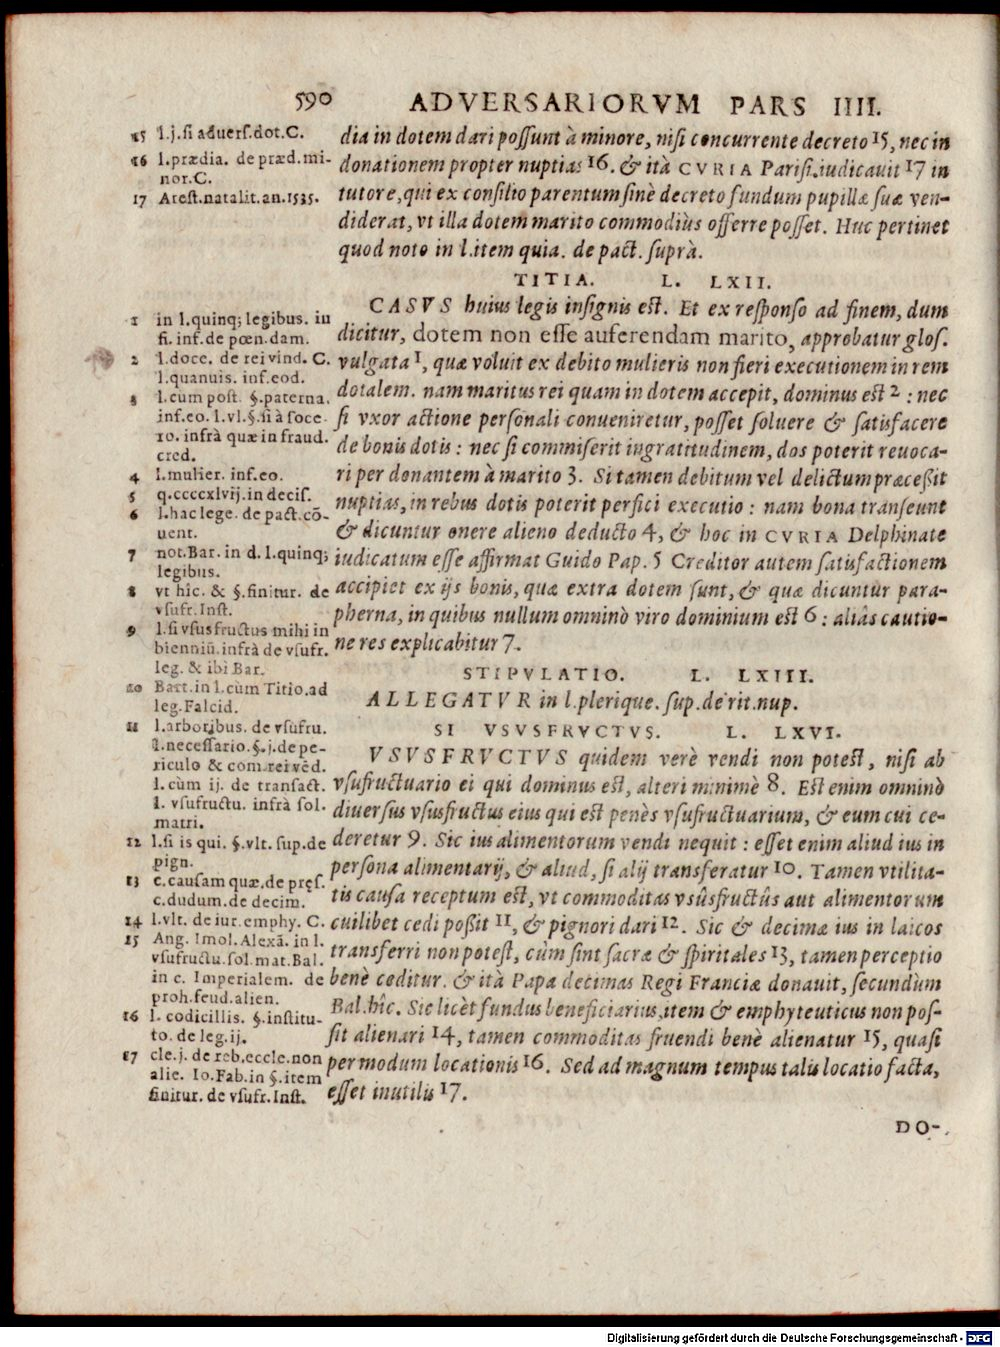 590 ADVERSARIORVM PARS IIII.
dia in dotem dari possunt à minore, nisi concurrente decreto 15, nec in
donationem propter nuptias 16. & ità CVRIA Parisi. iudicauit 17 in
tutore, qui ex consilio parentum sinè decreto fundum pupillæ suæ ven-
diderat, vt illa dotem marito commodiùs offerre posset. Huc pertinet
quod noto in l. item quia. de pact. suprà.
TITIA. L. LXII.
CASVS huius legis insignis est. Et ex responso ad finem, dum
dicitur, dotem non esse auferendam marito, approbatur glos.
vulgata 1, quæ voluit ex debito mulieris non fieri executionem in rem
dotalem. nam maritus rei quam in dotem accepit, dominus est 2 : nec
si vxor actione personali conueniretur, posset soluere & satisfacere
de bonis dotis : nec si commiserit ingratitudinem, dos poterit reuoca-
ri per donantem à marito 3. Si tamen debitum vel delictum præceßit
nuptias, in rebus dotis poterit perfici executio : nam bona transeunt
& dicuntur onere alieno deducto 4, & hoc in CVRIA Delphinate
iudicatum esse affirmat Guido Pap. 5 Creditor autem satisfactionem
accipiet ex ijs bonis, quæ extra dotem sunt, & quæ dicuntur para-
pherna, in quibus nullum omninò viro dominium est 6 : aliàs cautio-
ne res explicabitur 7.
STIPVLATIO. L. LXIII.
ALLEGATVR in l. plerique. sup. de rit. nup.
SI VSVSFRVCTVS. L. LXVI.
VSVSFRVCTVS quidem verè vendi non potest, nisi ab
vsufructuario ei qui dominus est, alteri minimè 8. Est enim omninò
diuersus vsusfructus eius qui est penès vsufructuarium, & eum cui ce-
deretur 9. Sic ius alimentorum vendi nequit : esset enim aliud ius in
persona alimentarij, & aliud, si alij transferatur 10. Tamen vtilita-
tis causa receptum est, vt commoditas vsûsfructûs aut alimentorum
cuilibet cedi poßit 11, & pignori dari 12. Sic & decimæ ius in laicos
transferri non potest, cùm sint sacræ & spiritales 13, tamen perceptio
benè ceditur. & ità Papa decimas Regi Franciæ donauit, secundùm
Bal. hîc. Sic licèt fundus beneficiarius, item & emphyteuticus non pos-
sit alienari 14, tamen commoditas fruendi benè alienatur 15, quasi
per modum locationis 16. Sed ad magnum tempus talis locatio facta,
esset inutilis 17.
DO-
15 l.j. si aduers. dot. C.
16 l. prædia. de præd. mi-
nor. C.
17 Arest. natalit. an. 1535.
1 in l. quinq; legibus. in
fi. inf. de pœn. dam.
2 l. doce. de rei vind. C.
l. quanuis. inf. eod.
3 l. cum post. §. paterna.
inf. eo. l. vl. §. si à soce-
ro. infrà quæ in fraud.
cred.
4 l. mulier. inf. eo.
5 q. ccccxlvij. in decis.
6 l. hac lege. de pact. cō-
uent.
7 not. Bar. in d. l. quinq;
legibus.
8 vt hîc. & §. finitur. de
vsufr. Inst.
9 l. si vsusfructus mihi in
bienniū. infrà de vsufr.
leg. & ibi Bar.
10 Bart. in l. cùm Titio. ad
leg. Falcid.
11 l. arboribus. de vsufru.
l. necessario. §. j. de pe-
riculo & com. rei vēd.
l. cùm ij. de transact.
l. vsufructu. infrà sol.
matri.
12 l. si is qui. §. vlt. sup. de
pign.
13 c. causam quæ. de pres.
c. dudum. de decim.
14 l. vlt. de iur. emphy. C.
15 Ang. Imol. Alexā. in l.
vsufructu. sol. mat. Bal.
in c. Imperialem. de
proh. feud. alien.
16 l. codicillis. §. institu-
to. de leg. ij.
17 cle. j. de reb. eccle. non
alie. Io. Fab. in §. item
finitur. de vsufr. Inst.
Digitalisierung gefördert durch die Deutsche Forschungsgemeinschaft - DFG